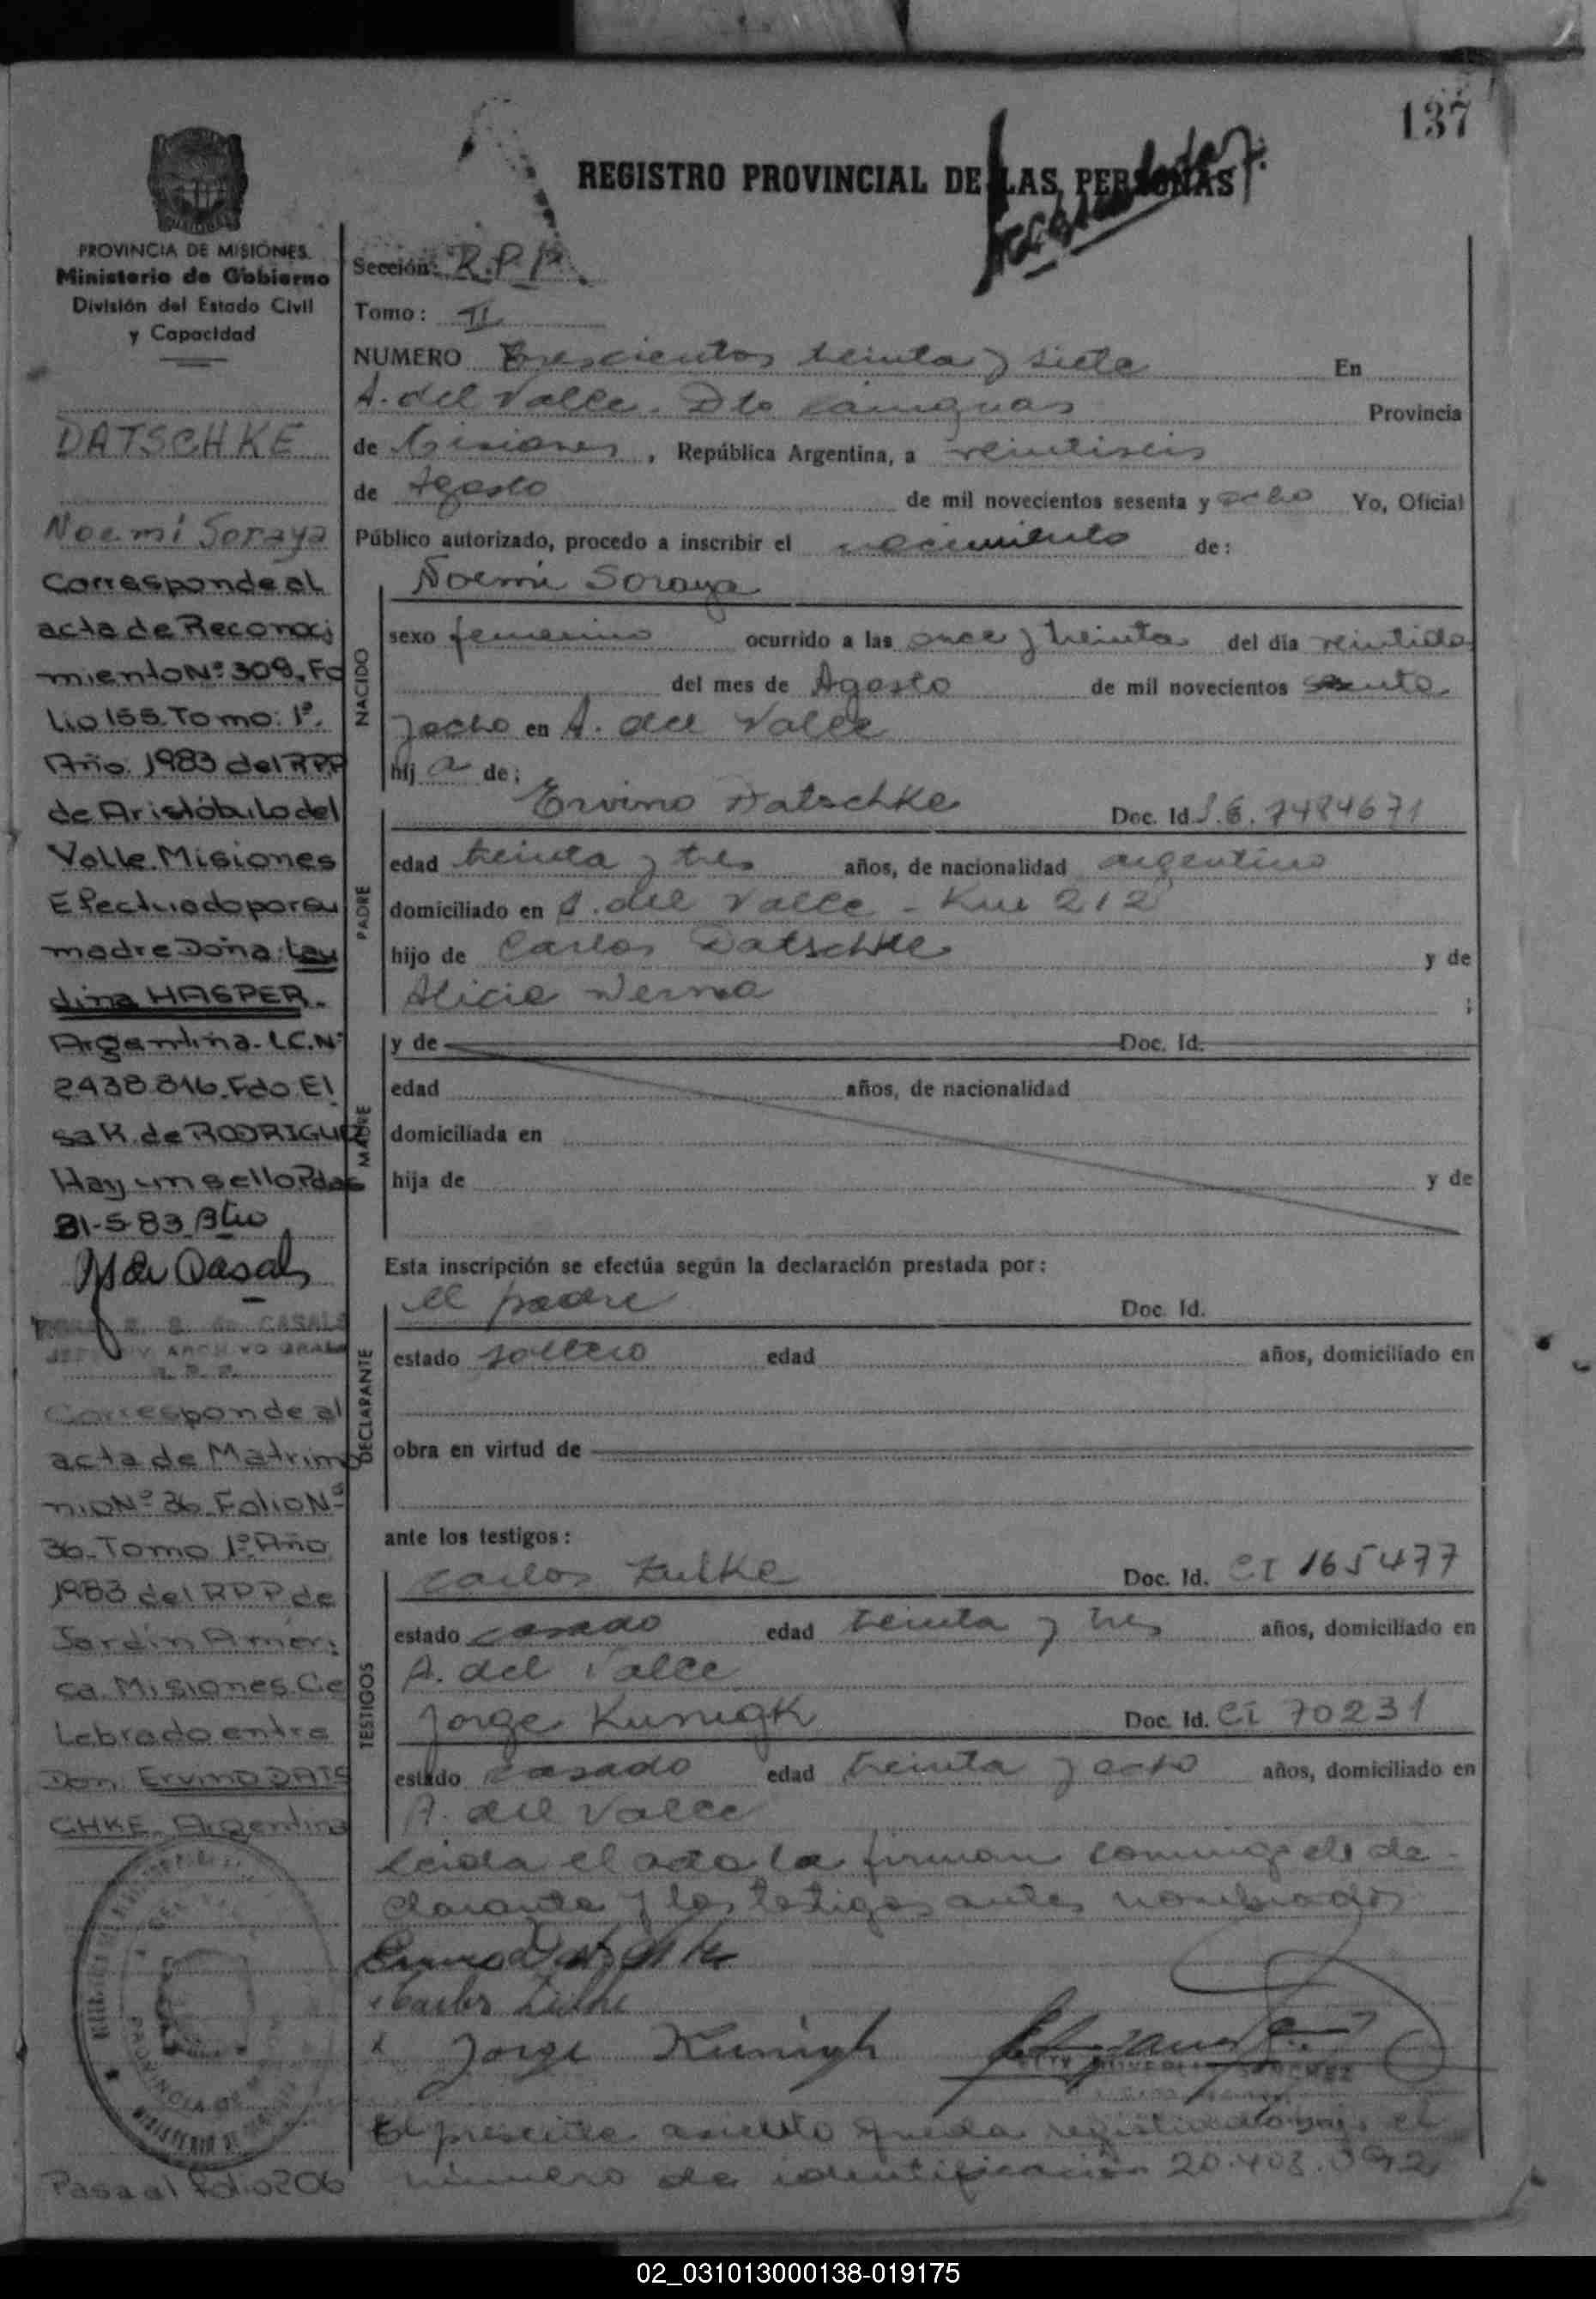 137
REGISTRO PROVINCIAL DE LAS PERSONAS
PROVINCIA DE MISIONES
Ministerio de Gobierno
División del Estado Civil
y Capacidad
DATSCHKE
Noemí Soraya
Corresponde al
acta de Reconoci
miento Nº 309. Fo
lio 155. Tomo: 1º.
Año 1983 del RPP
de Aristóbulo del
Valle. Misiones
Efectuado por su
madre Doña: Lau
dina HASPER.
Argentina. L.C. Nº
2.438.816. Fdo. El
sa K. de RODRIGUEZ
Hay un sello Pdas
31-5-83
CASALS
Corresponde al
acta de Matrimo
nio Nº 36. Folio Nº
36. Tomo 1º. Año
1983 del RPP de
Jardín Améri
ca. Misiones. Ce
lebrado entre
Don: Ervino DATS
CHKE. Argentino
Pasa al folio 206
Sección: R.P.P.
Tomo: II
NUMERO Trescientos treinta y siete En
A. del Valle. Dto Cainguas Provincia
de Misiones, República Argentina, a veintiseis
de Agosto de mil novecientos sesenta y ocho Yo, Oficial
Público autorizado, procedo a inscribir el nacimiento de:
NACIDO
Noemi Soraya
sexo femenino ocurrido a las once y treinta del día veintidos
del mes de Agosto de mil novecientos sesenta
y ocho en A. del Valle
hij a de:
PADRE
Ervino Datschke Doc. Id. 7484671
edad treinta y tres años, de nacionalidad argentino
domiciliado en A. del Valle - Km 212
hijo de Carlos Datschke y de
Alicia ;
MADRE
y de Doc. Id.
edad años, de nacionalidad
domiciliada en
hija de y de
Esta inscripción se efectúa según la declaración prestada por:
DECLARANTE
el padre Doc. Id.
estado soltero edad años, domiciliado en
obra en virtud de
ante los testigos:
TESTIGOS
Carlos Zulke Doc. Id. CI 165477
estado casado edad treinta y tres años, domiciliado en
A. del Valle
Jorge Kunigk Doc. Id. CI 70231
estado casado edad treinta y ocho años, domiciliado en
A. del Valle
Leida el acta la firman conmigo el de-
clarante y los testigos antes nombrados
Carlos Zulke
Jorge Kunigk
El presente asiento queda registrado bajo el
número de identificación 20.403.092
02_031013000138-019175